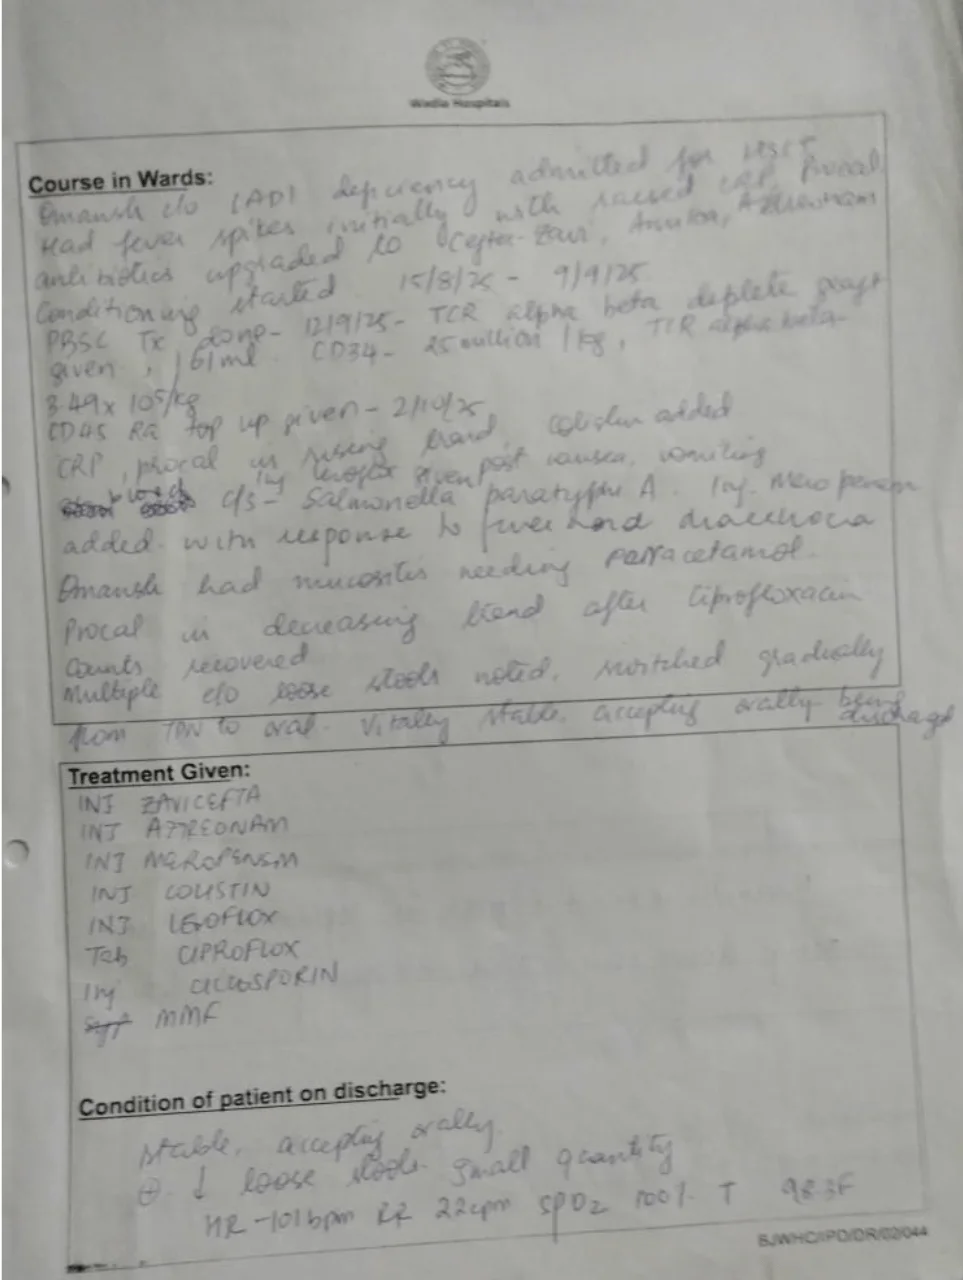 Wadia Hospitals
Course in Wards:
Omansh c/o LAD1 deficiency admitted for HSCT
Had fever spikes initially with raised CRP, Procal
antibiotics upgraded to Ceftaz-, Aztreonam
Conditioning started 15/8/25 - 9/9/25
PBSC Tx done - 12/9/25 - TCR alpha beta deplete graft
given, 161ml. CD34 - 25 million/kg, TCR alpha beta-
3.49x 10⁵/kg
CD45 RA top up given - 2/10/25
CRP, procal in rising trend, colistin added
Inj levoflox given post nausea, vomiting
c/s - Salmonella paratyphi A. Inj. Meropenem
added. with response to fever and diarrhoea
Omansh had mucositis needing parracetamol.
Procal in decreasing trend after Ciprofloxacin
Counts recovered
Multiple e/o loose stools noted, switched gradually
from TPN to oral. Vitally stable, accepting orally being
discharged
Treatment Given:
INJ ZAVICEFTA
INJ AZTREONAM
INJ MEROPENEM
INJ COLISTIN
INJ LEVOFLOX
Tab CIPROFLOX
Inj CICLOSPORIN
MMF
Condition of patient on discharge:
Stable, accepting orally.
⊕ ↓ loose stools. small quantity
HR -101bpm RR 22cpm SPO2 100% T 98.3F
BJWHC/IPD/DR/02/044